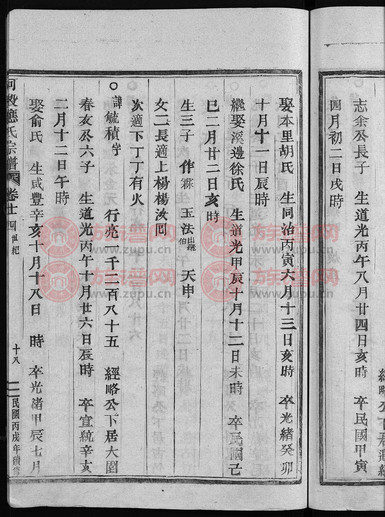 志余公長子　生道光丙午八月廿四日亥時　卒民國甲寅
四月初二日戌時
娶本里胡氏　生同治丙寅六月十三日亥時　卒光緒癸卯
十月十一日辰時
繼娶溪邊徐氏　生道光甲辰十月十二日未時　卒民國己
巳二月廿二日亥時
生三子　作霖　玉法出嗣伯　天申
女二長適上楊楊汝
次適下丁丁有火
○諱毓積字　行兆一千二百八十五　經略公下居大園
春亥公六子　生道光丙午十月廿六日辰時　卒宣統辛亥
二月十二日午時
娶俞氏　生咸豐辛亥十月十八日　時　卒光緒甲辰七月
河發應氏宗譜　卷廿四世紀　十八　民國丙戌年
族譜網
www.zupu.cn